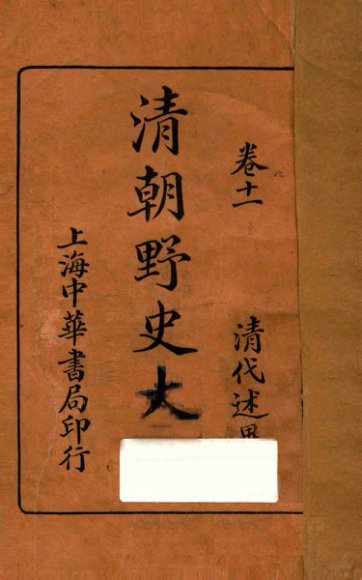 卷十一
清代述異
清朝野史大
上海中華書局印行